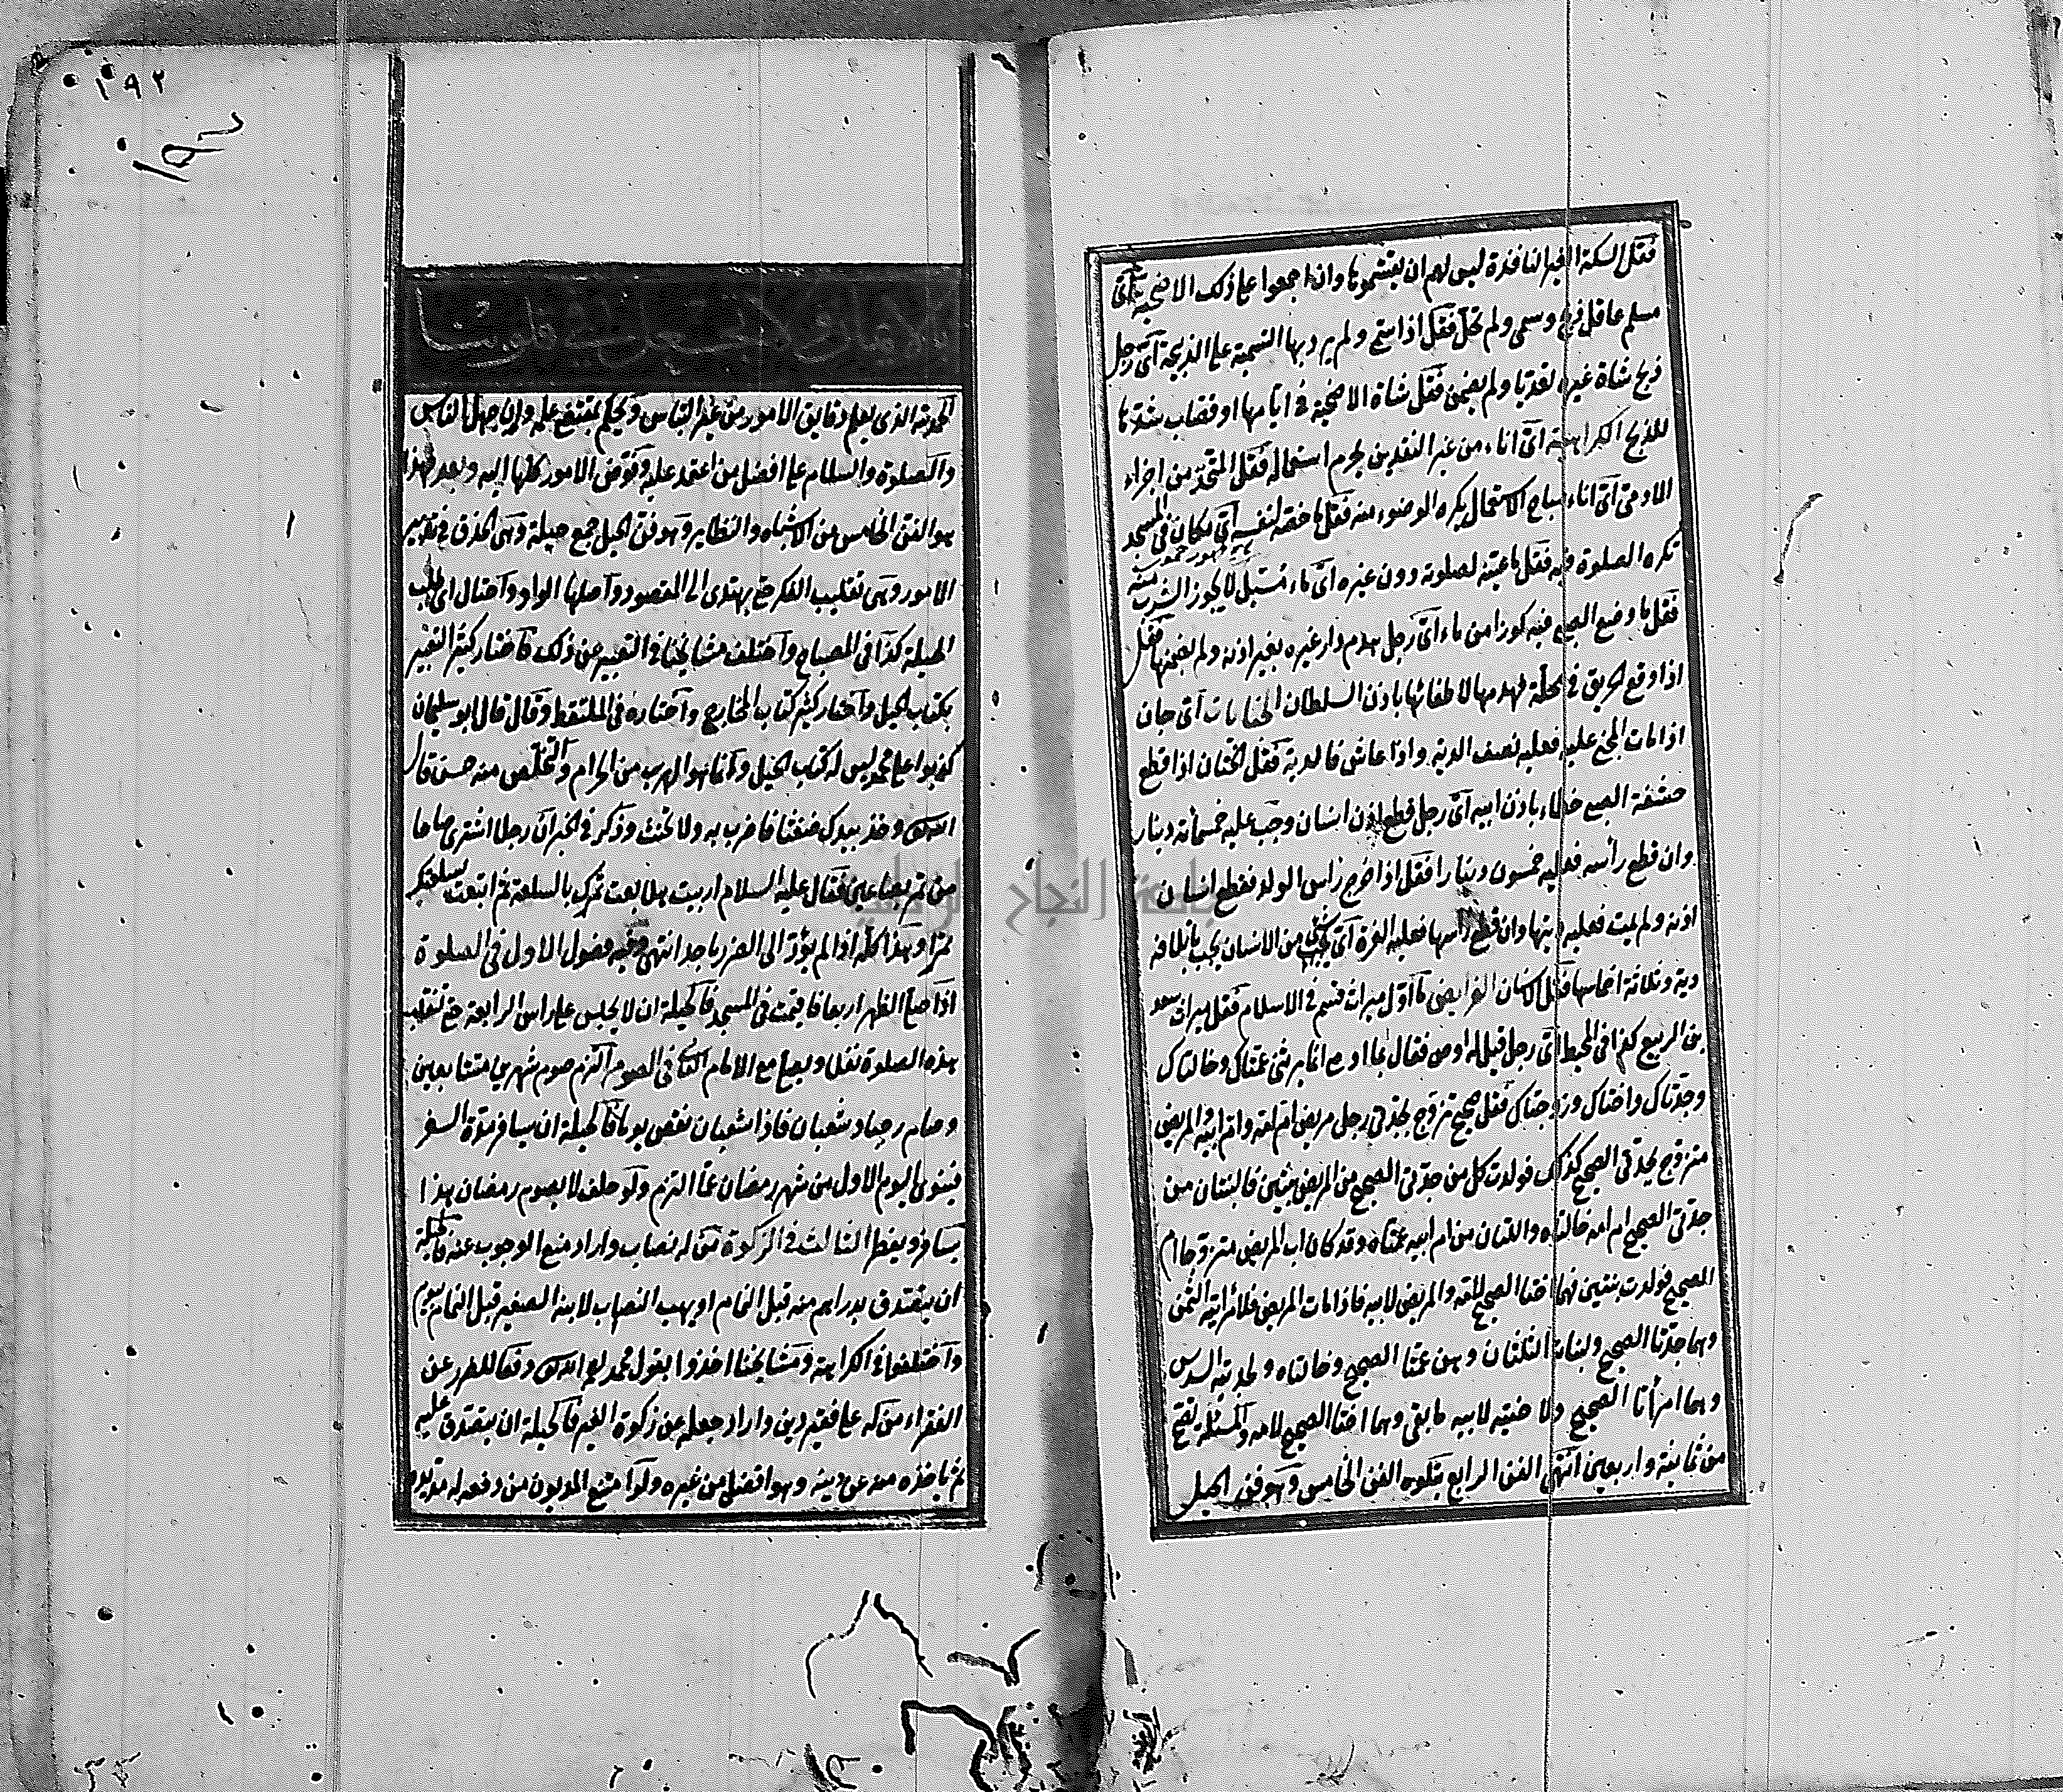 فقل السكة الغير النافذة ليس لهم ان يقتسموها وان اجمعوا على ذلك الاضحية اي
مسلم عاقل ذبح وسمى ولم تحل فقل اذا سمى ولم يرد بها التسمية على الذبيحة اي رجل
ذبح شاة غيره تعديا ولم يضمن فقل شاة الاضحية في ايامها او قصاب شدها
للذبح الكراهية اي اناء من غير النقدين يحرم استعماله فقل المتخذ من اجزاء
الادمي اي اناء مباح الاستعمال يكره الوضوء منه فقل ما خصه لنفسه اي مكان في المسجد
تكره الصلوة فيه فقل ما عينه لصلوته دون غيره اي ماء مسبل لا يجوز الشرب منه
فقل ما وضع الصبي فيه كوزا من ماء اي رجل هدم دار غيره بغير اذنه ولم يضمنها فقل
اذا وقع الحريق في محلة فهدمها لاطفائها باذن السلطان الجنايات اي جان
اذا مات المجني عليه فعليه نصف الدية واذا عاش فالدية فقل الختان اذا قطع
حشفة الصبي خطاء باذن ابيه اي رجل قطع اذن انسان وجب عليه خمسمائة دينار
وان قطع رأسه فعليه خمسون دينارا فقل اذا خرج رأس الولد فقطع انسان
اذنه ولم يمت فعليه ديتها وان قطع رأسها فعليه الغرة اي شئ من الانسان يجب باتلافه
دية وثلاثة اخماسها فقل الاسنان الفرايض ما اول ميراث قسم في الاسلام فقل ميراث سعد
بن الربيع كذا في المحيط اي رجل قيل له اوص فقال بما اوصي انما يرثني عمتاك وخالتاك
وجدتاك واختاك وزوجتاك فقل صحيح تزوج بجدتي رجل مريض ام امه وام ابيه والمريض
متزوج بجدتي الصحيح كذلك فولدت كل من جدتي الصحيح من المريض بنتين فالبنتان من
جدتي الصحيح ام امه خالتاه واللتان من ام ابيه عمتاه وقد كان اب المريض متزوجا ام
الصحيح فولدت بنتين فهما اختا الصحيح لامه والمريض لابيه فاذا مات المريض فلامرأتيه الثمن
وهما جدتا الصحيح ولبناته الثلثان وهن عمتا الصحيح وخالتاه ولجدتيه السدس
وهما امرأتا الصحيح ولاختيه لابيه ما بقي وهما اختا الصحيح لامه والمسئلة تصح
من ثمانية واربعين انتهى الفن الرابع يتلوه الفن الخامس وهو فن الحيل
١٩٢
١٩٢
بالايمان ولا تجعل في قلوبنا
الحمد لله الذي يعلم دقايق الامور من غير التباس ويحكم بمقتضى علمه وان جهل الناس
والصلوة والسلام على افضل من اعتمد عليه وفوض الامور كلها اليه وبعد فهذا
هو الفن الخامس من الاشباه والنظاير وهو فن الحيل جمع حيلة وهي الحذق في تدبير
الامور وهي تقليب الفكر حتى يهتدى الى المقصود واصلها الواو واحتال اي طلب
الحيلة كذا في المصباح واختلف مشايخنا في التعبير عن ذلك فاختار كثير التعبير
بكتاب الحيل واختار كثير كتاب المخارج واختاره في الملتقط وقال قال ابو سليمان
كذبوا على محمد ليس له كتاب الحيل وانما هو الهرب من الحرام والتخلص منه حسن قال
الله تعالى وخذ بيدك ضغثا فاضرب به ولا تحنث وذكر في الخبر ان رجلا اشترى صاعا
من تمر بصاعين فقال عليه السلام اربيت هلا بعت تمرك بالسلعة ثم ابتعت بسلعتك
تمرا وهذا كله اذا لم يؤد الى الضرر باحد انتهى وفيه فصول الاول في الصلوة
اذا صلى الظهر اربعا فاقيمت في المسجد فالحيلة ان لا يجلس على راس الرابعة حتى تنقلب
هذه الصلوة نفلا ويصلي مع الامام الثاني في الصوم التزم صوم شهرين متتابعين
وصام رجبا وشعبان فاذا شعبان نقص يوما فالحيلة ان يسافر مدة السفر
فينوي اليوم الاول من شهر رمضان عما التزم ولو حلف لا يصوم رمضان هذا
يسافر ويفطر الثالث في الزكوة من له نصاب واراد منع الوجوب عنه فالحيلة
ان يتصدق بدراهم منه قبل التمام او يهب النصاب لابنه الصغير قبل التمام بيوم
واختلفوا في الكراهة ومشايخنا اخذوا بقول محمد رحمه الله تعالى دفعا للضرر عن
الفقراء من له على فقير دين واراد جعله عن زكوة العين فالحيلة ان يتصدق عليه
ثم ياخذه منه عن دينه وهو افضل من غيره ولو امتنع المديون من دفعه له مد يده
جامعة النجاح الوطنية